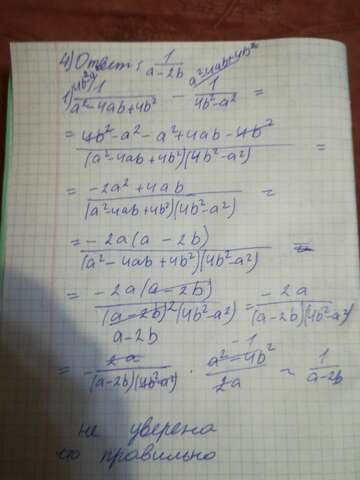 4) Ответ: 1/(a-2b)
1) (4b²-a²) 1/(a²-4ab+4b²) - (a²-4ab+4b²) 1/(4b²-a²) =
= (4b²-a²-a²+4ab-4b²)/((a²-4ab+4b²)(4b²-a²)) =
= (-2a²+4ab)/((a²-4ab+4b²)(4b²-a²)) =
= (-2a(a-2b))/((a²-4ab+4b²)(4b²-a²)) =
= (-2a(a-2b))/((a-2b)²(4b²-a²)) = (-2a)/((a-2b)(4b²-a²))
a-2b -1
= -2a/((a-2b)(4b²-a²)) · (a²-4b²)/2a = 1/(a-2b)
не уверена
что правильно